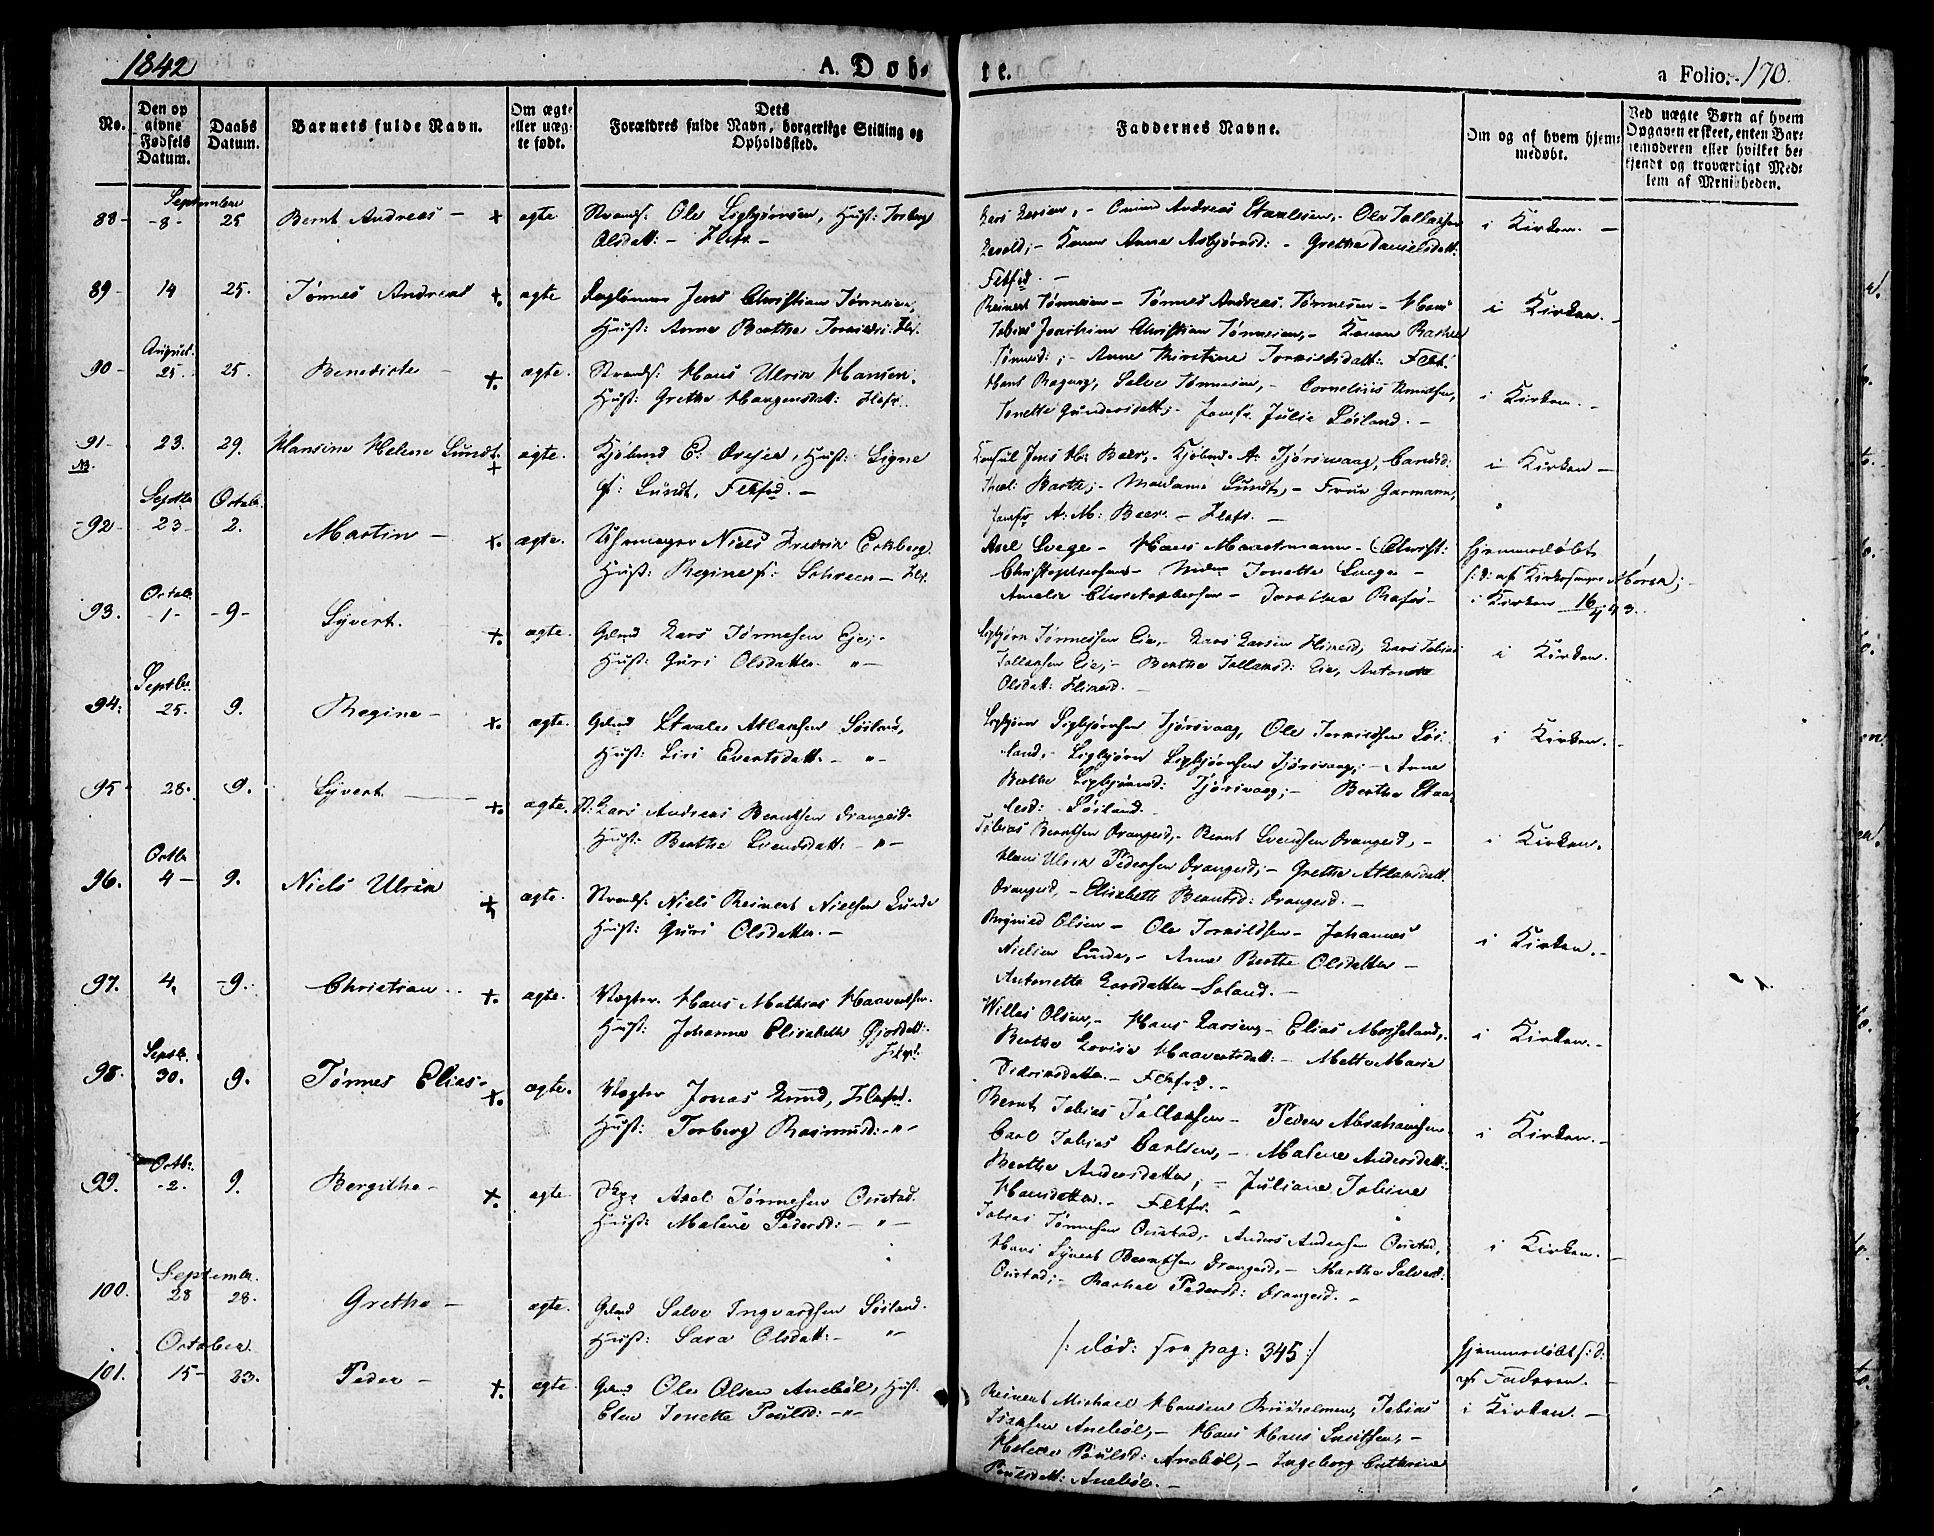 1842
A. Døb-
te.
a Folio: 170.
No.
Den op
givne
Fødsels
Datum.
Daabs
Datum.
Barnets fulde Navn.
Om ægte
eller uæg-
te født.
Dets
Forældres fulde Navn, borgerlige Stilling og
Opholdssted.
Faddernes Navne.
Om og af hvem hjem-
medøbt.
Ved uægte Børn af hvem
Opgaven er skeet, enten Bar-
nemoderen eller hvilket be-
kjendt og troværdigt Med-
lem af Menigheden.
September
88- -8- 25 Bernt Andreas - + ægte Strands: Ole Sigbjørnsen, Hust: Torberg
Olsdatt: -
Lars Larsen, - Andreas Staalesen, - Ole Tollaksen
Kone Anne Asbjørnsd: - Grethe Danielsdatt:
Flekfrd. -
i Kirken. -
89- 14 25. Tønnes Andreas +. ægte Jens Christian Tønnesen,
Hust: Anne Berthe
Reinert Tønnesen - Tønnes Andreas Tønnesen - Hans
Tobias Joachim Christian Tønnesen, - Konen Rachel
Tønnesd: ; - Anne Kirstine
i Kirken. -
August.
90- 25. 25. Benedicte - +. ægte. Strands: Hans Ulrik Hansen.
Hust: Grethe Haagensdatt:
Salve Tønnesen, - Cornelius Knudsen,
Tonette Gundersdatt; - Jomfr. Julie Løiland. -
i Kirken. -
91- 23. 29. Hansine Helene Lundt. + ægte. Kjøbmd E. Dreyer, Hust: Signe
NB.
f: Lundt, Flekfrd. -
Consul Jens H: Beer, - Kjøbmd A: Tjørsvaag, Candid:
Theol: Barth; - Madame Lundt, - Frue Garmann,
Jomfr A: M: Beer. -
i Kirken -
Septbr Octob:
-92- 23- 2. Martin - +. ægte. Uhrmager Niels Fredrik Eckberg
Hust: Regine f:
Axel Svege - Hans Maartmann - Christ:
Christophersen - Tonette Svege -
Amalie Christophersen - Dorothea
hjemmedøbt
af Kirkesanger
i Kirken
Octob:
93. -1- -9- Syvert. +. ægte. Gdmd Lars Tønnesen Eie; -
Hust: Guri Olsdatter. " -
Sigbjørn Tønnessen Eie, - Lars Larsen Lars Tobias
Tollaksen Eie; - Berthe Tollaksd: Eie, Antonette
Olsdatt:
i Kirken.
Septbr
94. 25. 9. Regine - +. ægte. Gdmd Staale Atlaksen Løiland,
Hust: Siri Evertsdatt. - " -
Sigbjørn Sigbjørnsen Tjørsvaag, Ole Løi-
land, - Sigbjørn Sigbjørnsen Tjørsvaag; - Anne
Berthe Sigbjørnsd: Tjørsvaag; - Berthe Staa-
lesd: Løiland.
i Kirken. -
95- 28. 9. Syvert. - +. ægte. Lars Andreas Berntsen Drangeid.
Hust: Berthe Svendsdatt: - " -
Tobias Berntsen Drangeid, - Bernt Svendsen Drangeid, -
Hans Ulrik Pedersen Drangeid; - Grethe Atlaksdatt:
Drangeid, - Elisabeth Berntsd: Drangeid. -
i Kirken.
Octbr
96. 4- 9. Niels Ulrik + ægte. Strands: Niels Reinert Nielsen Lunde
Hust: Guri Olsdatter. -
Olsen - Ole Torkildsen - Johannes
Nielsen Lunde, - Anne Berthe Olsdatter -
Antonette Larsdatter
i Kirken. -
97. 4. -9. Christian - +. ægte. Vægter Hans Mathias Haavertsen.
Hust: Johanne Elisabeth
Willas Olsen, - Hans Larsen, - Elias Mosseland,
Berthe Lovise Haavertsdatt: - Mette Marie
Didriksdatter. - Flekfrd. -
i Kirken. -
Septb.
98. 30. 9. Tønnes Elias - +. ægte. Vægter Jonas Lund,
Hust: Torberg Rasmusd: - " -
Bernt Tobias Tollaksen - Peder Abrahamsen
Carl Tobias Carlsen, - Malene Andersdatt:
Berthe Andersdatter, - Juliane Tobine
Hansdatter. - Flekfrd. -
i Kirken. -
Octbr:
99. -2. 9. Bergitha - +. ægte. Axel Tønnesen Oustad.
Hust: Malene Pedersd: - " -
Tobias Tønnesen Oustad, - Anders Andersen Oustad,
Hans Syvert Berntsen Drangeid, - Marthe Salvesd:
Oustad; - Rachel Pedersd: Drangeid. -
i Kirken. -
September.
100. 28 28. Grethe - ægte. Gdmd Salve Ingvartsen Løiland.
Hust: Sara Olsdatt: - " -
/: død: see pag: 345 :/
hjemmedøbt
af Faderen. -
October.
101. 15- 23. Peder - +. ægte. Gdmd Ole Olsen Anebøl, Hust.
Elen Tonette Poulsd: - " -
Reinert Michael Hansen Tobias
Isaksen Anebøl, - Hans Hans -
Helene Poulsd: Anebøl, - Ingeborg Cathrine
Poulsdatt: Anebøl. -
i Kirken. -